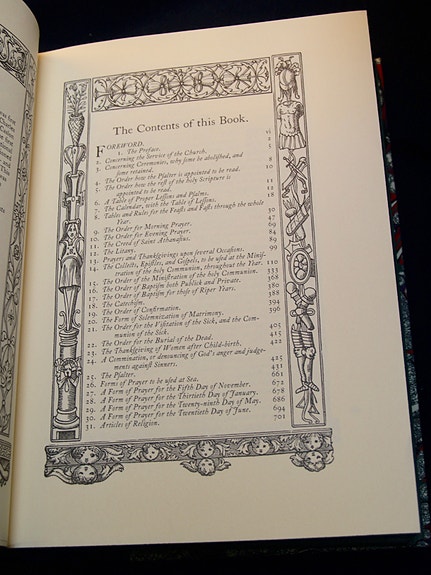 The Contents of this Book.
FOREWORD. vi
1. The Preface.
2. Concerning the Service of the Church.
3. Concerning Ceremonies, why some be abolished, and
some retained. 8
4. The Order how the Psalter is appointed to be read. 10
5. The Order how the rest of the holy Scripture is
appointed to be read.
6. A Table of Proper Lessons and Psalms.
7. The Calendar, with the Table of Lessons.
8. Tables and Rules for the Feasts and Fasts through the whole
Year.
9. The Order for Morning Prayer.
10. The Order for Evening Prayer. 69
11. The Creed of Saint Athanasius. 84
12. The Litany. 89
13. Prayers and Thanksgivings upon several Occasions. 99
14. The Collects, Epistles, and Gospels, to be used at the Mini-
stration of the holy Communion, throughout the Year. 110
15. The Order of the Ministration of the holy Communion. 333
16. The Order of Baptism both Publick and Private. 368
17. The Order of Baptism for those of Riper Years. 380
18. The Catechism. 388
19. The Order of Confirmation. 394
20. The Form of Solemnization of Matrimony. 396
21. The Order for the Visitation of the Sick, and the Com-
munion of the Sick. 405
22. The Order for the Burial of the Dead. 415
23. The Thanksgiving of Women after Child-birth. 422
24. A Commination, or denouncing of God's anger and judge-
ments against Sinners. 425
25. The Psalter. 431
26. Forms of Prayer to be used at Sea. 661
27. A Form of Prayer for the Fifth Day of November. 672
28. A Form of Prayer for the Thirtieth Day of January. 678
29. A Form of Prayer for the Twenty-ninth Day of May. 686
30. A Form of Prayer for the Twentieth Day of June. 694
31. Articles of Religion. 701